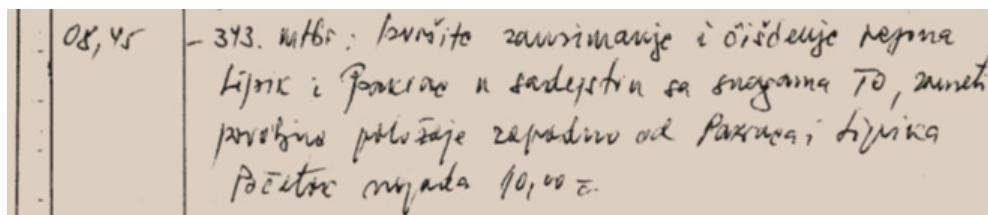 08,45 - 343. mtbr: Izvršite zauzimanje i čišćenje rejona
Lipik i Pakrac u sadejstvu sa snagama TO, zauzeti
povoljne položaje zapadno od Pakraca i Lipika
Početak napada 10,00 č.